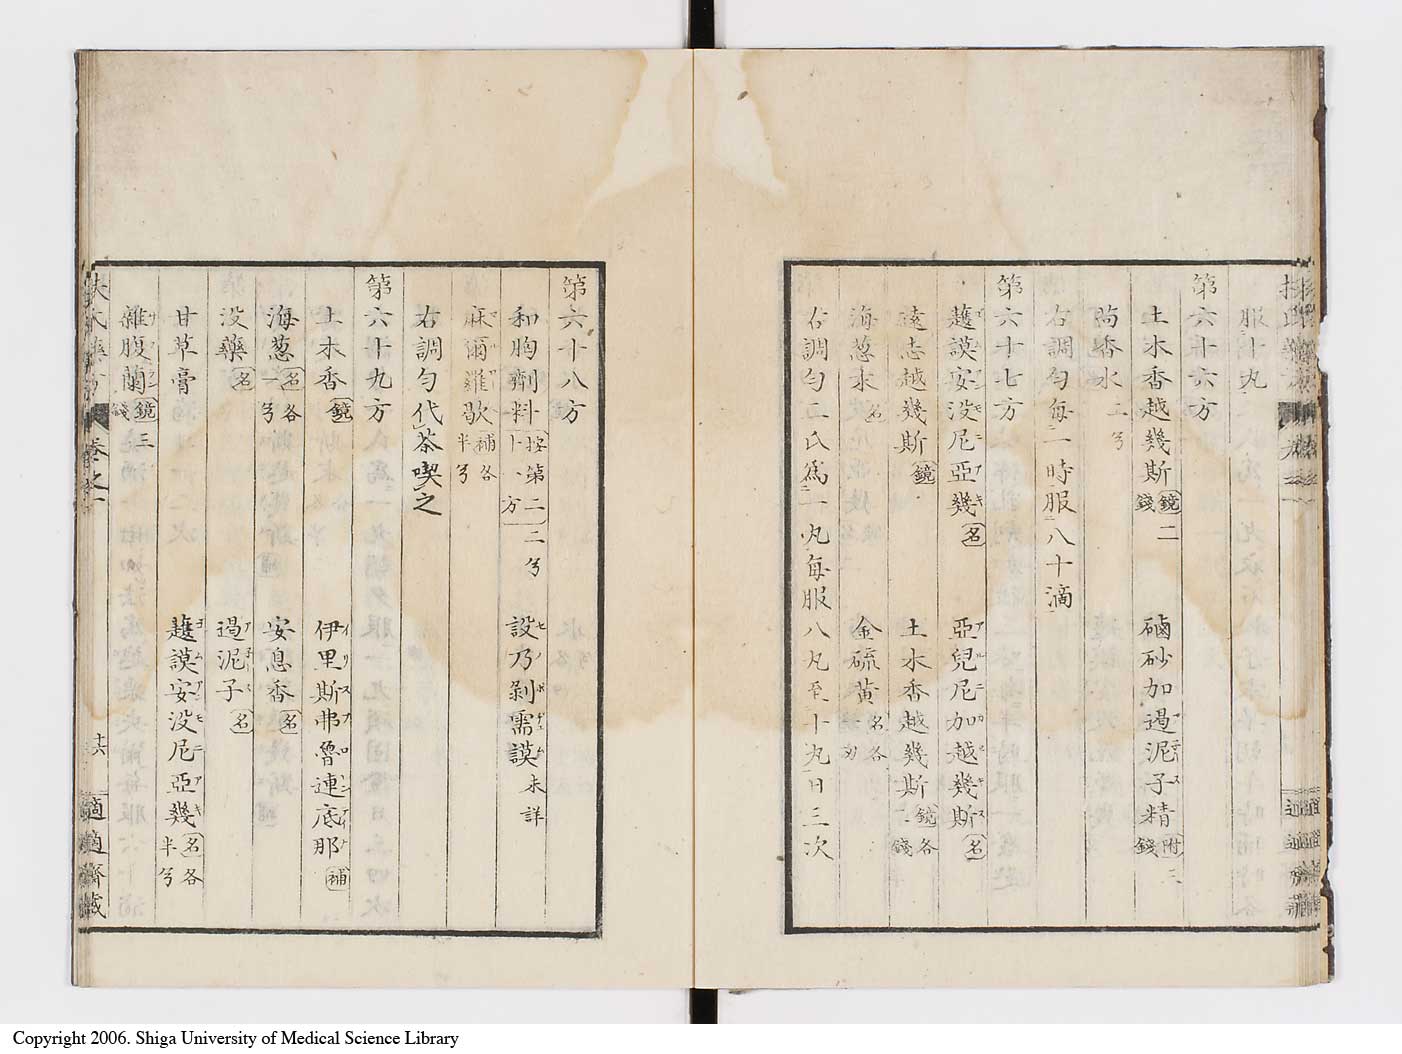 服十丸
第六十六方
土木香越幾斯鏡二錢 磠砂加遏泥子精附三錢
茴香水二兮
右調勻每一時服八十滴
第六十七方
護謨安没尼亞幾名 亞兒尼加越幾斯名
遠志越幾斯鏡 土木香越幾斯鏡各二錢
海葱末名 金硫黄名各
右調勻二氏爲一丸每服八丸至十丸日三次
第六十八方
和胸劑料按第二十、方二兮 設乃剥需謨未詳
麻爾羅歇補各半兮
右調勻代茶喫之
第六十九方
土木香鏡 伊里斯弗魯連底那補
海葱名各一兮 安息香名
没藥名 遏泥子名
甘草膏 護謨安没尼亞幾名各半兮
雜腹蘭鏡三錢
卷之一 十六 適適齋藏
Copyright 2006. Shiga University of Medical Science Library